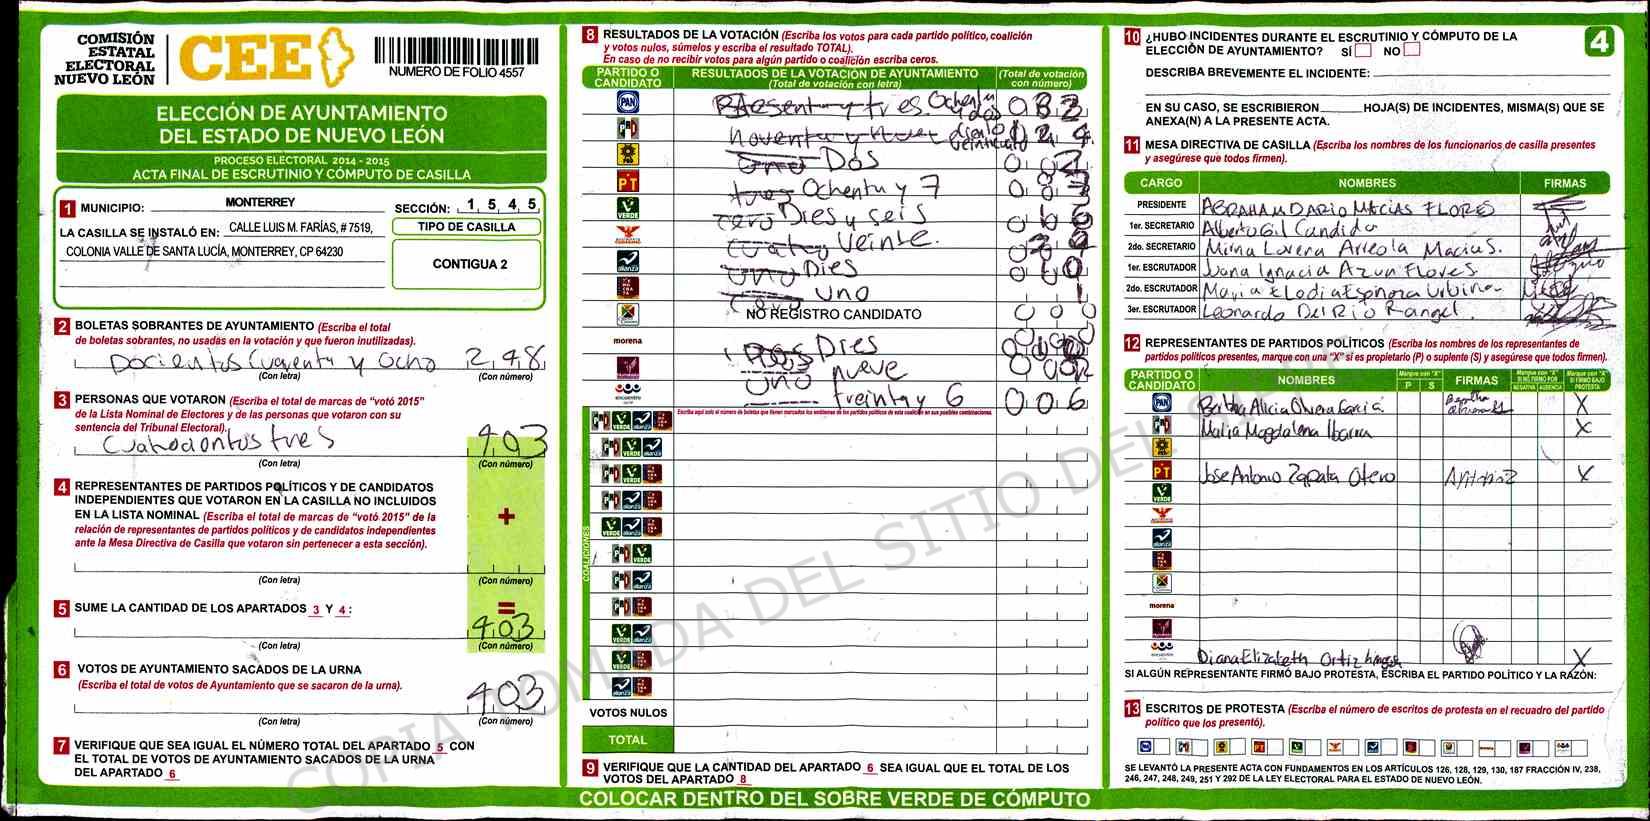 COMISIÓN
ESTATAL
ELECTORAL
NUEVO LEÓN
CEE
NUMERO DE FOLIO 4557
ELECCIÓN DE AYUNTAMIENTO
DEL ESTADO DE NUEVO LEÓN
PROCESO ELECTORAL 2014 - 2015
ACTA FINAL DE ESCRUTINIO Y CÓMPUTO DE CASILLA
1 MUNICIPIO: MONTERREY
SECCIÓN: 1 5 4 5
LA CASILLA SE INSTALÓ EN: CALLE LUIS M. FARÍAS, # 7519,
COLONIA VALLE DE SANTA LUCÍA, MONTERREY, CP 64230
TIPO DE CASILLA
CONTIGUA 2
2 BOLETAS SOBRANTES DE AYUNTAMIENTO (Escriba el total
de boletas sobrantes, no usadas en la votación y que fueron inutilizadas).
Docientos Cuarenta y Ocho 248
(Con letra) (Con número)
3 PERSONAS QUE VOTARON (Escriba el total de marcas de "votó 2015"
de la Lista Nominal de Electores y de las personas que votaron con su
sentencia del Tribunal Electoral).
403
(Con letra) (Con número)
4 REPRESENTANTES DE PARTIDOS POLÍTICOS Y DE CANDIDATOS
INDEPENDIENTES QUE VOTARON EN LA CASILLA NO INCLUIDOS
EN LA LISTA NOMINAL (Escriba el total de marcas de "votó 2015" de la
relación de representantes de partidos políticos y de candidatos independientes
ante la Mesa Directiva de Casilla que votaron sin pertenecer a esta sección).
+
(Con letra) (Con número)
5 SUME LA CANTIDAD DE LOS APARTADOS 3 Y 4 :
=
403
(Con letra) (Con número)
6 VOTOS DE AYUNTAMIENTO SACADOS DE LA URNA
(Escriba el total de votos de Ayuntamiento que se sacaron de la urna).
403
(Con letra) (Con número)
7 VERIFIQUE QUE SEA IGUAL EL NÚMERO TOTAL DEL APARTADO 5 CON
EL TOTAL DE VOTOS DE AYUNTAMIENTO SACADOS DE LA URNA
DEL APARTADO 6
8 RESULTADOS DE LA VOTACIÓN (Escriba los votos para cada partido político, coalición
y votos nulos, súmelos y escriba el resultado TOTAL).
En caso de no recibir votos para algún partido o coalición escriba ceros.
PARTIDO O
CANDIDATO
RESULTADOS DE LA VOTACIÓN DE AYUNTAMIENTO
(Total de votación con letra)
(Total de votación
con número)
PAN y tres Ochenta y dos 0
PRI noventa y nueve ciento
PRD Uno Dos 0 0 2
PT tres Ochenta y 7 0
VERDE cero Dies y seis 0
cuatro Veinte
alianza Uno Dies 0
Uno 1
NO REGISTRO CANDIDATO 0 0 0
morena Dos Dies
nueve
encuentro Uno treinta y 6 0 0 6
Escriba aquí solo el número de boletas que tienen marcados los emblemas de los partidos políticos de esta coalición en sus posibles combinaciones.
COALICIONES
VOTOS NULOS
TOTAL
9 VERIFIQUE QUE LA CANTIDAD DEL APARTADO 6 SEA IGUAL QUE EL TOTAL DE LOS
VOTOS DEL APARTADO 8
COLOCAR DENTRO DEL SOBRE VERDE DE CÓMPUTO
10 ¿HUBO INCIDENTES DURANTE EL ESCRUTINIO Y CÓMPUTO DE LA
ELECCIÓN DE AYUNTAMIENTO? SÍ NO
4
DESCRIBA BREVEMENTE EL INCIDENTE:
EN SU CASO, SE ESCRIBIERON HOJA(S) DE INCIDENTES, MISMA(S) QUE SE
ANEXA(N) A LA PRESENTE ACTA.
11 MESA DIRECTIVA DE CASILLA (Escriba los nombres de los funcionarios de casilla presentes
y asegúrese que todos firmen).
CARGO NOMBRES FIRMAS
PRESIDENTE ABRAHAM DARIO MACIAS FLORES
1er. SECRETARIO Alberto Gil Candido
2do. SECRETARIO Mirna Lorena Arreola Macias.
1er. ESCRUTADOR Juana Ignacia Azun Flores
2do. ESCRUTADOR Maria Elodia Espinoza Urbina
3er. ESCRUTADOR Leonardo Del Rio Rangel.
12 REPRESENTANTES DE PARTIDOS POLÍTICOS (Escriba los nombres de los representantes de
partidos políticos presentes, marque con una "X" si es propietario (P) o suplente (S) y asegúrese que todos firmen).
PARTIDO O
CANDIDATO
NOMBRES
Marque con "X"
P S
FIRMAS
Marque con "X"
SI NO FIRMÓ POR
NEGATIVA AUSENCIA
Marque con "X"
SI FIRMÓ BAJO
PROTESTA
PAN Bertha Alicia Olvera Garcia X
PRI Maria Magdalena Ibarra X
PRD
PT Jose Antonio Zapata Otero X
VERDE
alianza
morena
encuentro Diana Elizabeth Ortiz X
SI ALGÚN REPRESENTANTE FIRMÓ BAJO PROTESTA, ESCRIBA EL PARTIDO POLÍTICO Y LA RAZÓN:
13 ESCRITOS DE PROTESTA (Escriba el número de escritos de protesta en el recuadro del partido
político que los presentó).
SE LEVANTÓ LA PRESENTE ACTA CON FUNDAMENTOS EN LOS ARTÍCULOS 126, 128, 129, 130, 187 FRACCIÓN IV, 238,
246, 247, 248, 249, 251 Y 292 DE LA LEY ELECTORAL PARA EL ESTADO DE NUEVO LEÓN.
COPIA TOMADA DEL SITIO DEL